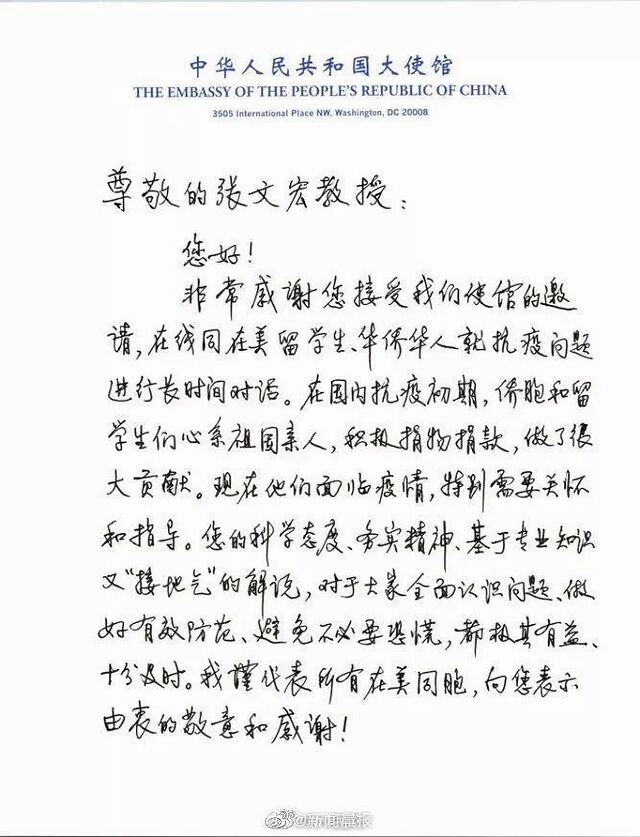 中华人民共和国大使馆
THE EMBASSY OF THE PEOPLE'S REPUBLIC OF CHINA
3505 International Place NW, Washington, DC 20008
尊敬的张文宏教授：
您好！
非常感谢您接受我们使馆的邀
请，在线同在美留学生、华侨华人就抗疫问题
进行长时间对话。在国内抗疫初期，侨胞和留
学生们心系祖国亲人，积极捐物捐款，做了很
大贡献。现在他们面临疫情，特别需要关怀
和指导。您的科学态度、务实精神、基于专业知识
又“接地气”的解说，对于大家全面认识问题、做
好有效防范、避免不必要恐慌，都极其有益、
十分及时。我谨代表所有在美同胞，向您表示
由衷的敬意和感谢！
@新闻晨报